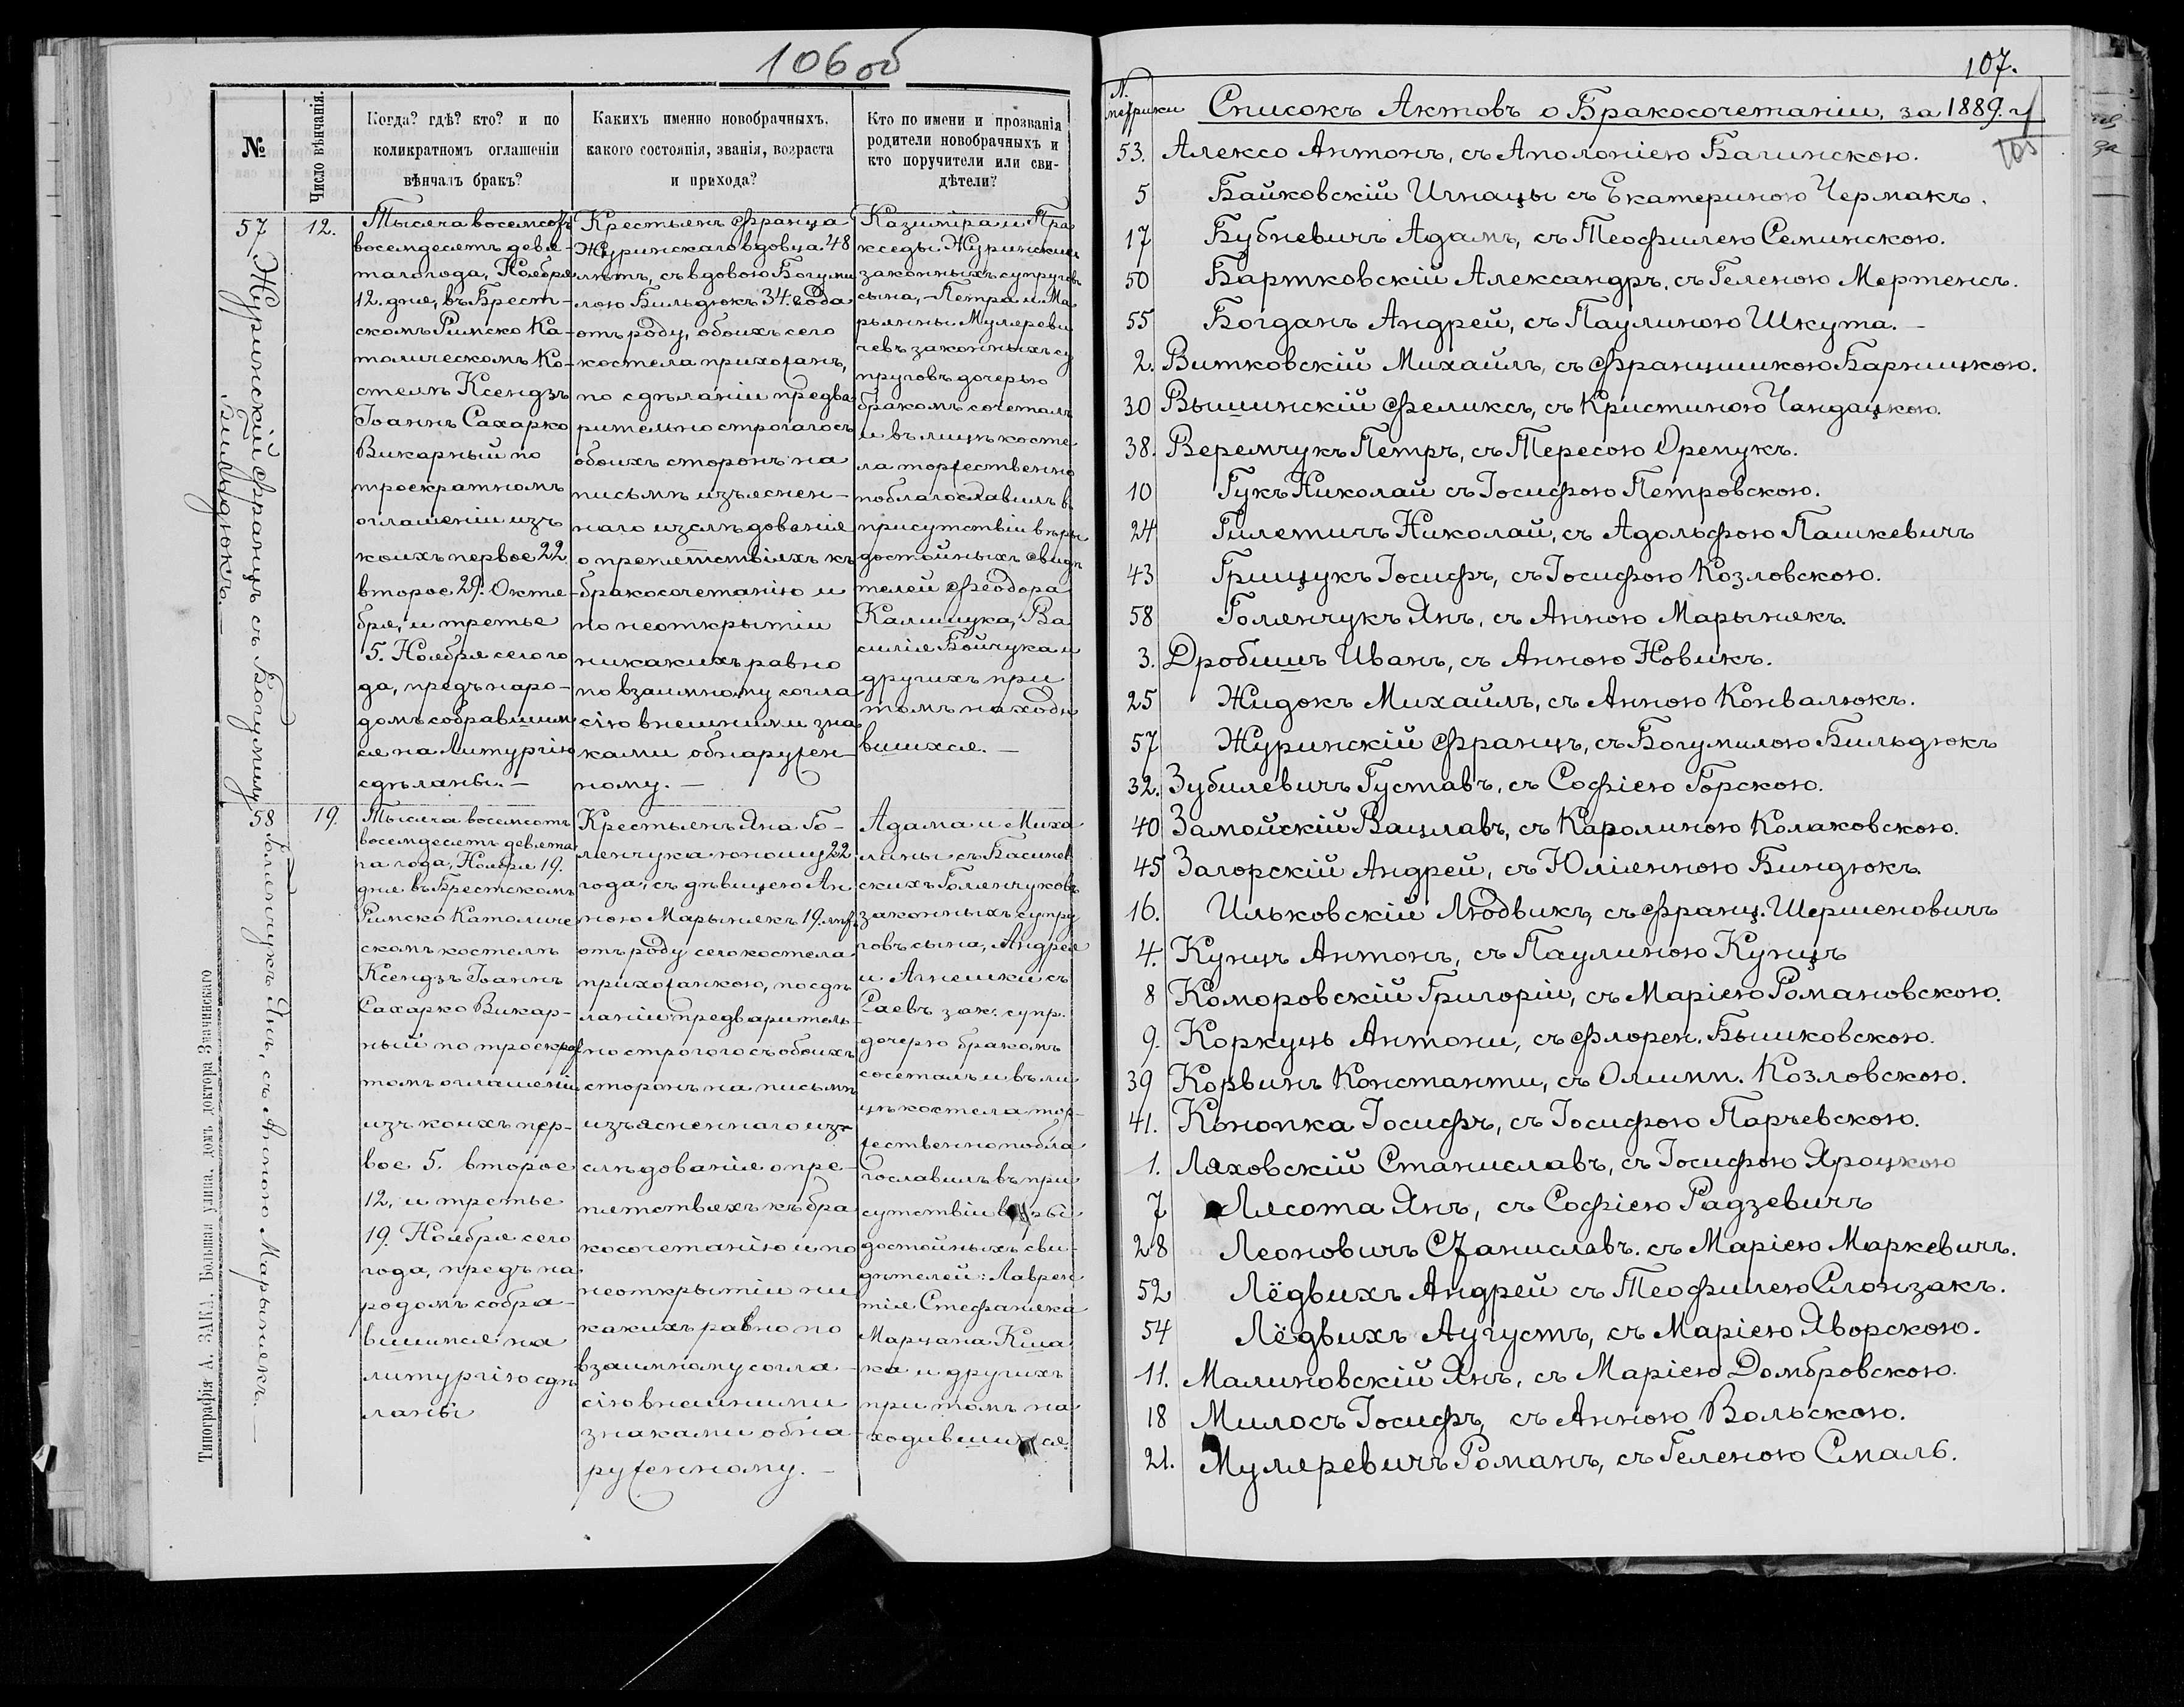 106 об
№
Число вѣнчанія.
Когда? гдѣ? кто? и по
коликратномъ оглашеніи
вѣнчалъ бракъ?
Какихъ именно новобрачныхъ,
какого состоянія, званія, возраста
и прихода?
Кто по имени и прозванія
родители новобрачныхъ и
кто поручители или сви-
дѣтели?
57
12.
Журинскій Францъ съ Богумилу
Бильдюкъ. —
Тысяча восемсотъ
восемдесятъ девя-
таго года, Ноября
12. дня, въ Брест-
скомъ Римско Ка-
толическомъ Ко-
стелѣ Ксендзъ
Іоаннъ Сахарко
Викарный по
троекратномъ
оглашеніи изъ
коихъ первое 22
второе 29. Октя-
бря, и третье
5. Ноября сего го
да, предъ наро-
домъ собравшим
ся на Литургію
сдѣланы. —
Крестьянъ Франца
Журинскаго вдовца 48
лѣтъ, съ вдовою Богуми
лою Бильдюкъ 34. года
отъ роду, обоихъ сего
костела прихожанъ,
по сдѣланіи предва
рительно строгаго съ
обоихъ сторонъ на
письмѣ изъяснен-
наго изслѣдованія
о препятствіяхъ къ
бракосочетанію и
по неоткрытіи
никакихъ равно
по взаимному согла
сію внешними зна
ками обнаружен-
ному. —
Казимира и Пра
кседы Журинских
законныхъ супруговъ
сына, — Петра и Ма
рьянны Муляреви
чевъ законныхъ су
пруговъ дочерью
бракомъ сочеталъ
и въ лицѣ косте
ла торжественно
поблагославилъ в
присутствіи вѣры
достойныхъ свидѣ
телей Феодора
Калишука, Ва
силія Бойчука и
другихъ при
томъ находи
вшихся. —
58
19.
Голенчукъ Янъ, съ Анною Марынякъ. —
Тысяча восемсотъ
восемдесятъ девята
га года, Ноября 19.
дня въ Брестскомъ
Римско Католиче
скомъ костелѣ
Ксендзъ Іоаннъ
Сахарко Викар-
ный по троекрат
томъ оглашеніи
изъ коихъ пер-
вое 5. второе
12. и третье
19. Ноября сего
года, предъ на
родомъ собра-
вшимся на
литургію сдѣ
ланы
Крестьянъ Яна Го-
ленчука юношу 22
года, съ дѣвицею Ан
ною Марынякъ 19. лѣт
отъ роду сего костела
прихожанкою, по сдѣ
ланіи предваритель
но строгого съ обоихъ
сторонъ на письмѣ
изъясненнаго из
слѣдованія о пре-
пятствьяхъ къ бра
косочетанію и по
неоткрытіи ни
какихъ равно по
взаимному согла-
сію внешними
знаками обна-
руженному. —
Адама и Миха
лины съ Басинов
скихъ Голенчуковъ
законныхъ супру
говъ сына, Андрея
и Агнешки съ
Раевъ зак. супр.
дочерью бракомъ
сочеталъ и въ ли
цѣ костела тор-
жественно побла
гославилъ въ при
сутствіи вѣры
достойныхъ сви-
дѣтелей: Лаврен
тія Стефаняка
Марцана Кша
ка и другихъ
при томъ на
ходившихся.
Типографія А. ЗАКА. Большая улица, домъ доктора Значинскаго
107.
N.
метрики
Списокъ Актовъ о Бракосочетаніи, за 1889. г
105
53. Алексо Антонъ, съ Аполоніею Багинскою.
5 Байковскій Игнацы съ Екатериною Чермакъ.
17 Бубневичъ Адамъ, съ Теофилею Семинскою.
50 Бартковскій Александръ, съ Геленою Мертенсъ.
55 Богданъ Андрей, съ Паулиною Шкута. —
2. Витковскій Михайлъ, съ Францишкою Барницкою.
30 Вышинскій Феликсъ, съ Кристиною Чандацкою.
38. Веремчукъ Петръ, съ Тересою Орепукъ.
10 Гукъ Николай съ Іосифою Петровскою.
24 Гилетичъ Николай, съ Адольфою Пашкевичъ
43 Грищукъ Іосифъ, съ Іосифою Козловскою.
58 Голенчукъ Янъ, съ Анною Марынякъ.
3. Дробишъ Иванъ, съ Анною Новикъ.
25 Жидокъ Михайлъ, съ Анною Конвалюкъ.
57 Журинскій Францъ, съ Богумилою Бильдюкъ
32. Зубилевичъ Густавъ, съ Софіею Горскою.
40 Замойскій Вацлавъ, съ Каролиною Колаковскою.
45 Загорскій Андрей, съ Юліянною Биндюкъ.
16. Ильковскій Людвикъ, съ Франц. Шершеновичъ
4. Кунцъ Антонъ, съ Паулиною Кунцъ
8 Коморовскій Григоріи, съ Маріею Романовскою.
9. Коркуць Антони, съ Флорен. Бышковскою.
39 Корвинъ Константи, съ Олимп. Козловскою.
41. Конопка Іосифъ, съ Іосифою Парчевскою.
1. Ляховскій Станиславъ, съ Іосифою Яроцкою
7 Лясота Янъ, съ Софіею Радзевичъ
28 Леоновичъ Станиславъ. съ Маріею Маркевичъ.
52 Лёдвихъ Андрей съ Теофилею Слонзакъ.
54 Лёдвихъ Аугустъ, съ Маріею Яворскою.
11. Малиновскій Янъ, съ Маріею Домбровскою.
18 Милосъ Іосифъ, съ Анною Вольскою.
21. Муляревичъ Романъ, съ Геленою Смаль.